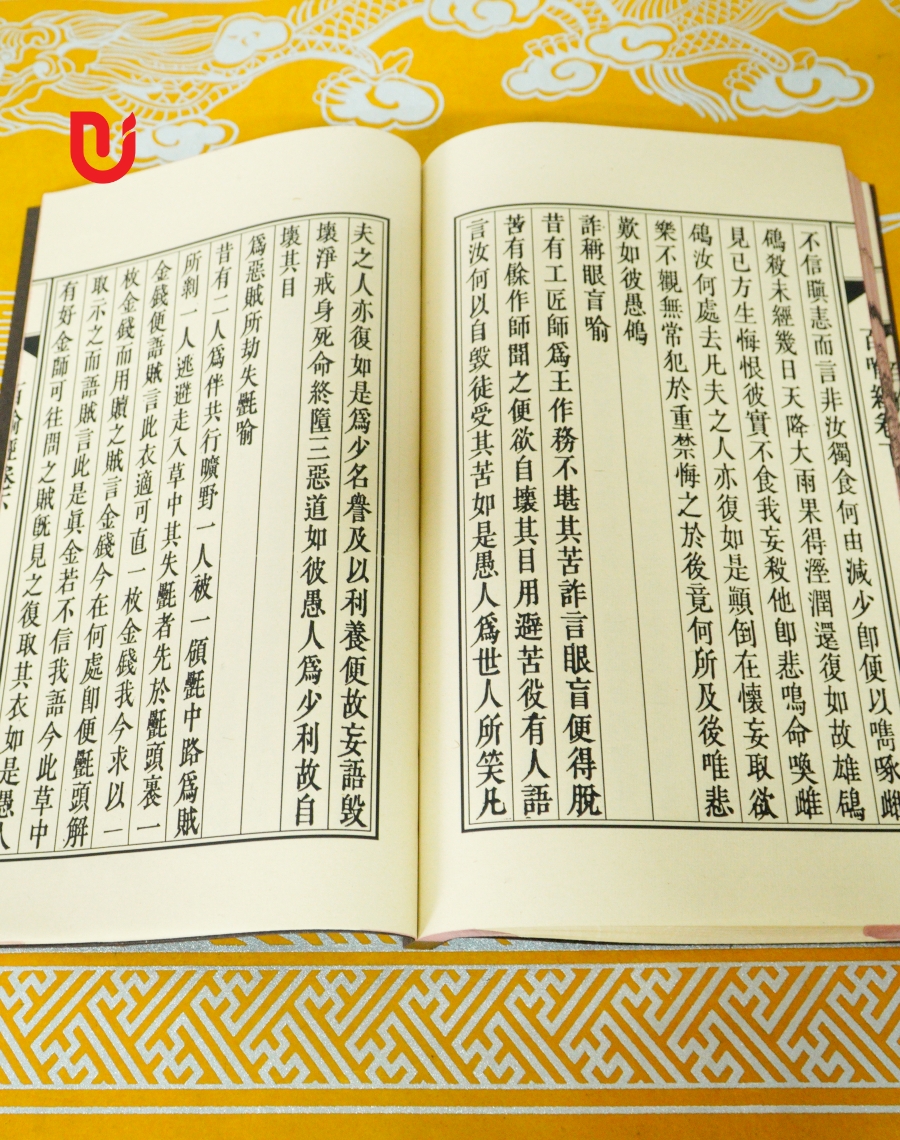 不信瞋恚而言非汝獨食何由減少卽便以雋啄雌
鴿殺未經幾日天降大雨果得溼潤還復如故雄鴿
見已方生悔恨彼實不食我妄殺他卽悲鳴命喚雌
鴿汝何處去凡夫之人亦復如是顚倒在懷妄取欲
樂不觀無常犯於重禁悔之於後竟何所及後唯悲
歎如彼愚鴿
詐稱眼盲喻
昔有工匠師爲王作務不堪其苦詐言眼盲便得脫
苦有餘作師聞之便欲自壞其目用避苦役有人語
言汝何以自毀徒受其苦如是愚人爲世人所笑凡
夫之人亦復如是爲少名譽及以利養便故妄語毀
壞淨戒身死命終墮三惡道如彼愚人爲少利故自
壞其目
爲惡賊所劫失㲲喻
昔有二人爲伴共行曠野一人被一領㲲中路爲賊
所剝一人逃避走入草中其失㲲者先於㲲頭裹一
金錢便語賊言此衣適可直一枚金錢我今求以一
枚金錢而用贖之賊言金錢今在何處卽便㲲頭解
取示之而語賊言此是眞金若不信我語今此草中
有好金師可往問之賊旣見之復取其衣如是愚人